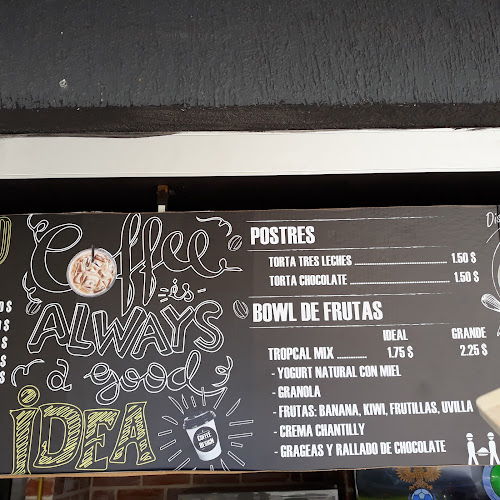 Coffee
is
ALWAYS
a good
IDEA
COFFEE
DESIGN
POSTRES
TORTA TRES LECHES ........................ 1.50 $
TORTA CHOCOLATE ........................ 1.50 $
BOWL DE FRUTAS
IDEAL GRANDE
TROPCAL MIX ............. 1.75 $ 2.25 $
- YOGURT NATURAL CON MIEL
- GRANOLA
- FRUTAS: BANANA, KIWI, FRUTILLAS, UVILLA
- CREMA CHANTILLY
- GRAGEAS Y RALLADO DE CHOCOLATE